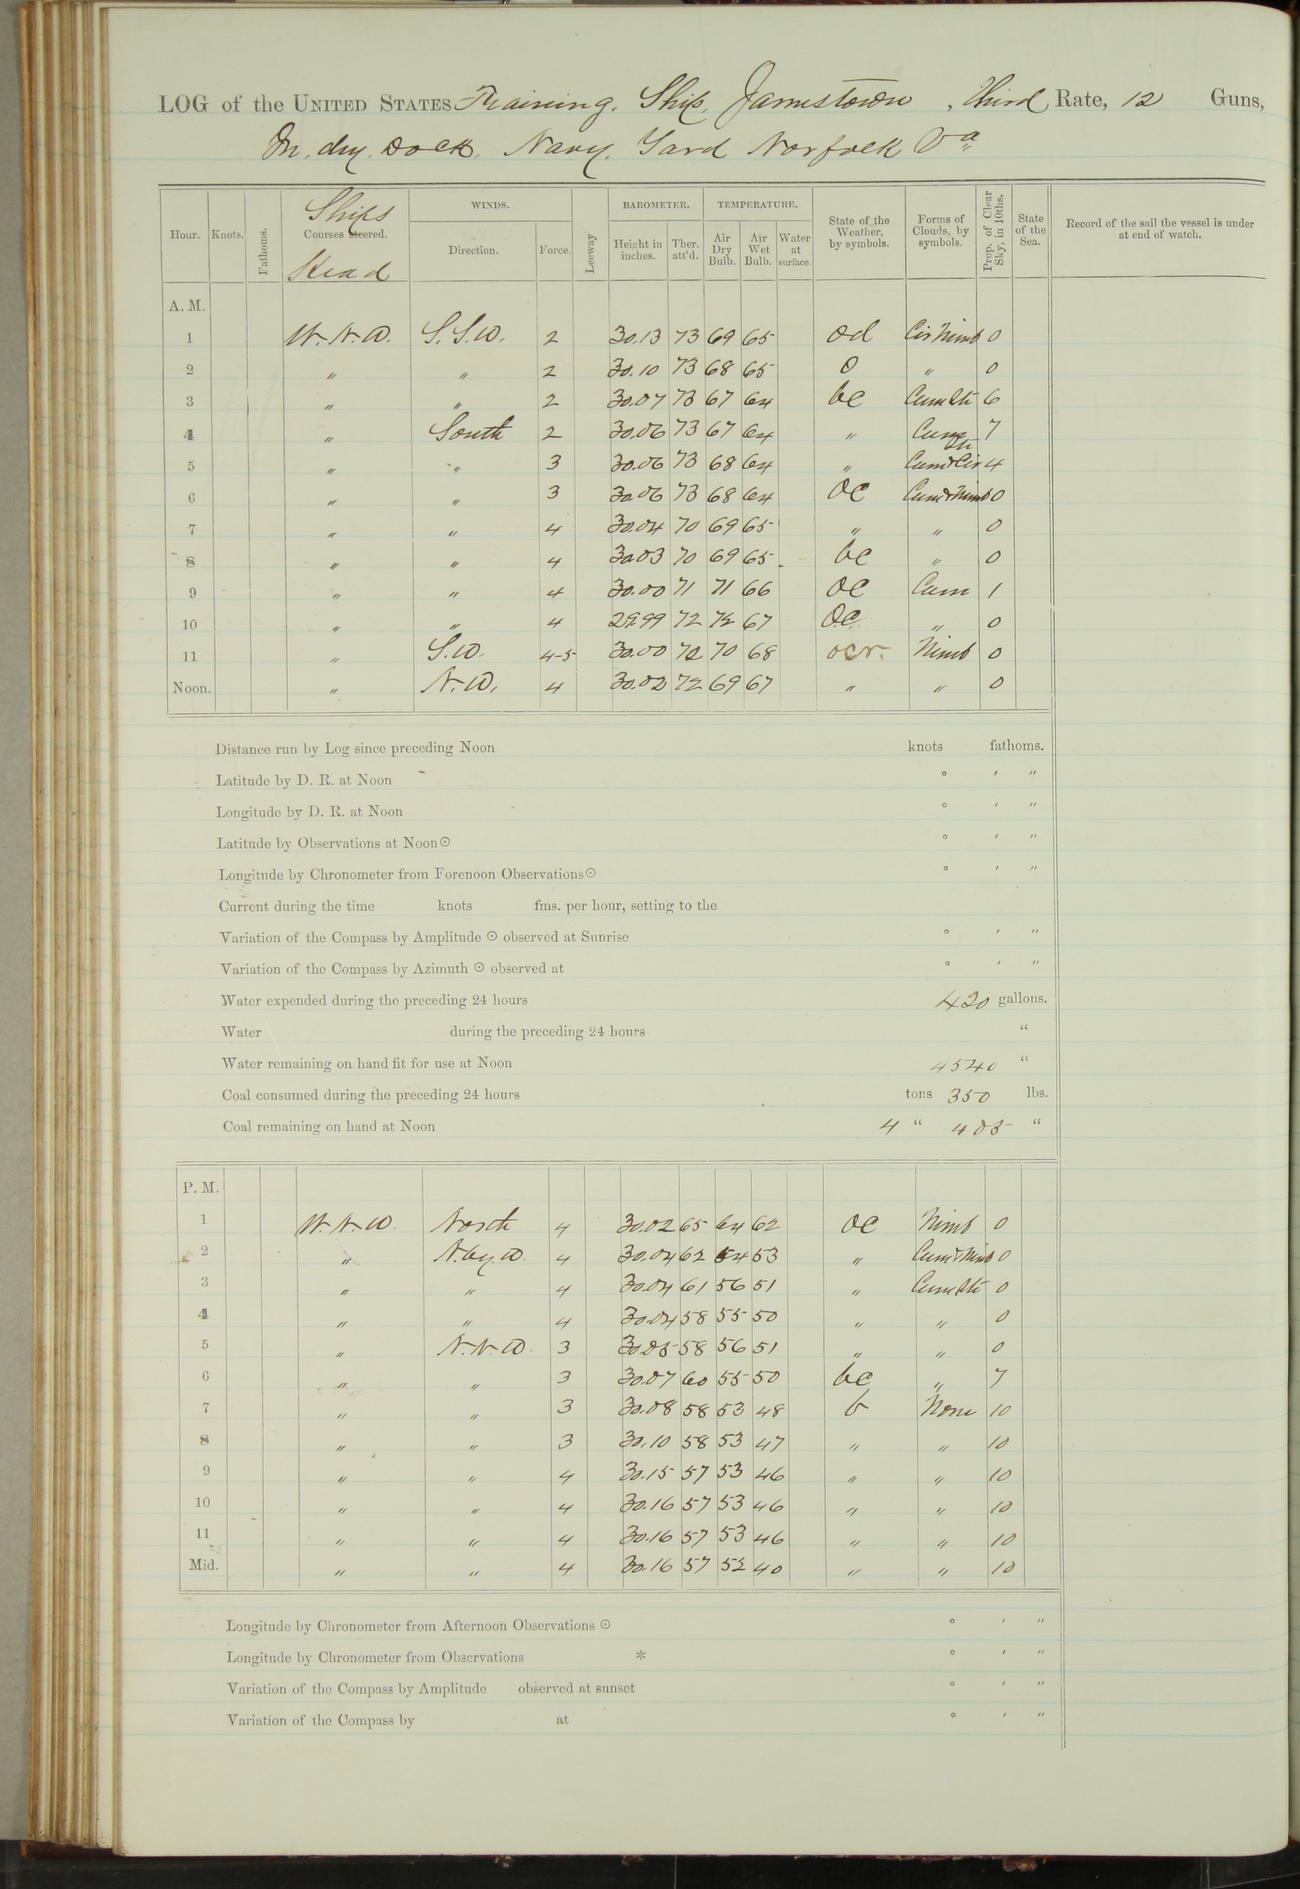 LOG of the UNITED STATES Training Ship Jamestown, Third Rate, 12 Guns,
In dry Dock Navy Yard Norfolk Va
Hour. Knots. Fathoms. Ships Courses steered. Head WINDS. Direction. Force. Leeway BAROMETER. Height in inches. Ther. att'd. TEMPERATURE. Air Dry Bulb. Air Wet Bulb. Water at surface. State of the Weather, by symbols. Forms of Clouds, by symbols. Prop. of Clear Sky, in 10ths. State of the Sea. Record of the sail the vessel is under at end of watch.
A. M.
1 W.N.W. S.S.W. 2 30.13 73 69 65 od Cir Nimb 0
2 " " 2 30.10 73 68 65 o " 0
3 " " 2 30.07 73 67 64 bc Cum Str 6
4 " South 2 30.06 73 67 64 " Cum Str 7
5 " " 3 30.06 73 68 64 " Cum & Cir 4
6 " " 3 30.06 73 68 64 oc Cum & Nimb 0
7 " " 4 30.04 70 69 65 " " 0
8 " " 4 30.03 70 69 65 bc " 0
9 " " 4 30.00 71 71 66 oc Cum 1
10 " " 4 29.99 72 72 67 oc " 0
11 " S.W. 4-5 30.00 72 70 68 ocr. Nimb 0
Noon. " N.W. 4 30.02 72 69 67 " " 0
Distance run by Log since preceding Noon knots fathoms.
Latitude by D. R. at Noon ° ′ ″
Longitude by D. R. at Noon ° ′ ″
Latitude by Observations at Noon ☉ ° ′ ″
Longitude by Chronometer from Forenoon Observations ☉ ° ′ ″
Current during the time knots fms. per hour, setting to the
Variation of the Compass by Amplitude ☉ observed at Sunrise ° ′ ″
Variation of the Compass by Azimuth ☉ observed at ° ′ ″
Water expended during the preceding 24 hours 420 gallons.
Water during the preceding 24 hours "
Water remaining on hand fit for use at Noon 4540 "
Coal consumed during the preceding 24 hours tons 350 lbs.
Coal remaining on hand at Noon 4 " 405 "
P. M.
1 W.N.W. North 4 30.02 65 64 62 oc Nimb 0
2 " N.by.W. 4 30.04 62 54 53 " Cum & Nimb 0
3 " " 4 30.04 61 56 51 " Cum Str 0
4 " " 4 30.04 58 55 50 " " 0
5 " N.N.W. 3 30.05 58 56 51 " " 0
6 " " 3 30.07 60 55 50 bc " 7
7 " " 3 30.08 58 53 48 b None 10
8 " " 3 30.10 58 53 47 " " 10
9 " " 4 30.15 57 53 46 " " 10
10 " " 4 30.16 57 53 46 " " 10
11 " " 4 30.16 57 53 46 " " 10
Mid. " " 4 30.16 57 52 40 " " 10
Longitude by Chronometer from Afternoon Observations ☉ ° ′ ″
Longitude by Chronometer from Observations * ° ′ ″
Variation of the Compass by Amplitude observed at sunset ° ′ ″
Variation of the Compass by at ° ′ ″